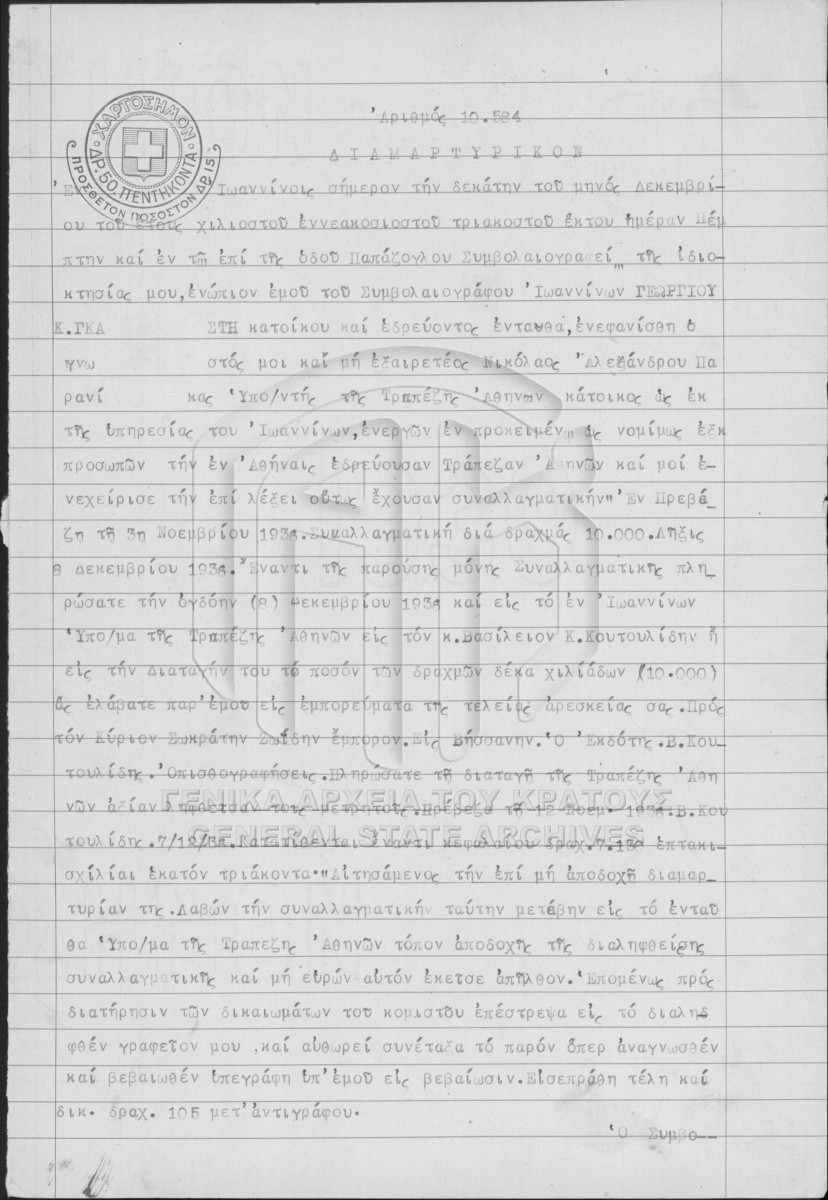 ΧΑΡΤΟΣΗΜΟΝ
ΔΡ. 50. ΠΕΝΤΗΚΟΝΤΑ
ΠΡΟΣΘΕΤΟΝ ΠΟΣΟΣΤΟΝ ΔΡ. 15
Ἀριθμός 10.584
ΔΙΑΜΑΡΤΥΡΙΚΟΝ
Ἰωαννίνοις σήμερον τήν δεκάτην τοῦ μηνός Δεκεμβρί-
ου τοῦ ἔτους χιλιοστοῦ ἐννεακοσιοστοῦ τριακοστοῦ ἕκτου ἡμέραν Πέμ
πτην καί ἐν τῷ ἐπί τῆς ὁδοῦ Παπάζογλου Συμβολαιογραφείῳ τῆς ἰδιο-
κτησίας μου, ἐνώπιον ἐμοῦ τοῦ Συμβολαιογράφου Ἰωαννίνων ΓΕΩΡΓΙΟΥ
Κ. ΓΚΑ ΣΤΗ κατοίκου καί ἑδρεύοντος ἐνταυθά, ἐνεφανίσθη ὁ
γνω στός μοι καί μή ἐξαιρετέος Νικόλαος Ἀλεξάνδρου Πα
ρανί κας Ὑπο/ντής τῆς Τραπέζης Ἀθηνων κάτοικος ὡς ἐκ
τῆς ὑπηρεσίας του Ἰωαννίνων, ἐνεργῶν ἐν προκειμένῳ ὡς νομίμως ἐξκ
προσωπῶν τήν ἐν Ἀθήναις ἑδρεύουσαν Τράπεζαν Ἀθηνῶν καί μοί ἐ-
νεχείρισε τήν ἐπί λέξει οὕτως ἔχουσαν συναλλαγματικήν" Ἐν Πρεβέ
ζη τῇ 3η Νοεμβρίου 1936. Συναλλαγματική διά δραχμάς 10.000. Λῆξις
8 Δεκεμβρίου 1936. Ἔναντι τῆς παρούσης μόνης Συναλλαγματικῆς πλη_
ρώσατε τήν ὀγδόην (8) Δεκεμβρίου 1936 καί εἰς τό ἐν Ἰωαννίνων
Ὑπο/μα τῆς Τραπέζης Ἀθηνῶν εἰς τόν κ. Βασίλειον Κ. Κουτουλίδην ἤ
εἰς τήν Διαταγήν του τό ποσόν τῶν δραχμῶν δέκα χιλιάδων (10.000)
ἅς ἐλάβατε παρ' ἐμοῦ εἰς ἐμπορεύματα τῆς τελείας ἀρεσκείας σας. Πρός
τόν Κύριον Σωκράτην Ζωΐδην ἔμπορον. Εἰς Βήσσανην. Ὁ Ἐκδότης. Β. Κου-
τουλίδης. Ὀπισθογραφήσεις. Πληρώσατε τῇ διαταγῇ τῆς Τραπέζης Ἀθη
νῶν ἀξίαν ληφθεῖσαν τοῖς μετρητοῖς. Πρέβεζα τῇ 12 Νοεμ. 1936. Β. Κου
τουλίδης. 7/12/36. Κατατίθενται ἔναντι κεφαλαίου δραχ. 7.130 ἑπτακι-
σχίλιαι ἑκατόν τριάκοντα." Αἰτησάμενος τήν ἐπί μή ἀποδοχῇ διαμαρ-
τυρίαν της. Λαβών τήν συναλλαγματικήν ταύτην μετέβην εἰς τό ἐνταῦ
θα Ὑπο/μα τῆς Τραπεζης Ἀθηνῶν τόπον ἀποδοχῆς τῆς διαληφθείσης
συναλλαγματικῆς καί μή εὑρών αὐτόν ἐκεῖσε ἀπῆλθον. Ἑπομένως πρός
διατήρησιν τῶν δικαιωμάτων τοῦ κομιστοῦ ἐπέστρεψα εἰς τό διαλη
φθέν γραφεῖον μου, καί αὐθωρεί συνέταξα τό παρόν ὅπερ ἀναγνωσθέν
καί βεβαιωθέν ὑπεγράφη ὑπ' ἐμοῦ εἰς βεβαίωσιν. Εἰσεπράθη τέλη καί
δικ. δραχ. 105 μετ' ἀντιγράφου.
Ὁ Συμβο--
ΓΕΝΙΚΑ ΑΡΧΕΙΑ ΤΟΥ ΚΡΑΤΟΥΣ
GENERAL STATE ARCHIVES